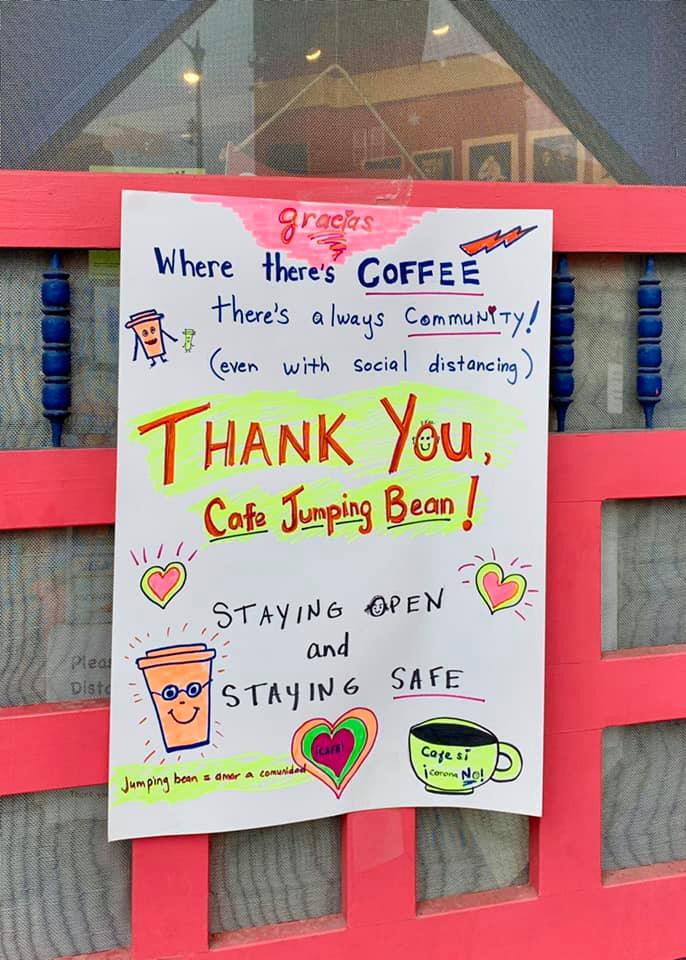 gracias
Where there's COFFEE
there's always COMMUNITY!
(even with social distancing)
THANK YOU,
Cafe Jumping Bean!
STAYING OPEN
and
STAYING SAFE
¡CAFE!
Jumping bean = amor a comunidad
Cafe si
¡corona NO!